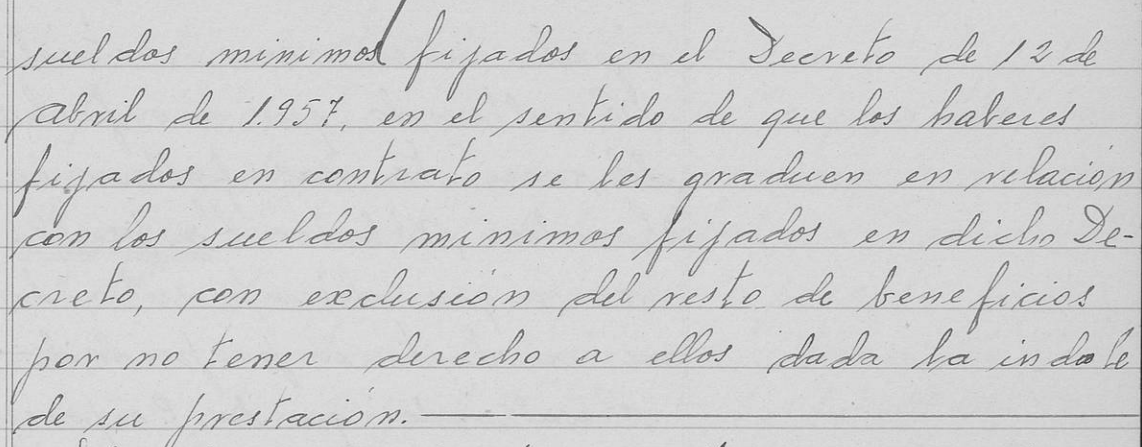 sueldos minimos fijados en el Decreto de 12 de
abril de 1.957, en el sentido de que los haberes
fijados en contrato se les graduen en relación
con los sueldos minimos fijados en dicho De-
creto, con exclusión del resto de beneficios
por no tener derecho a ellos dada la indole
de su prestación.